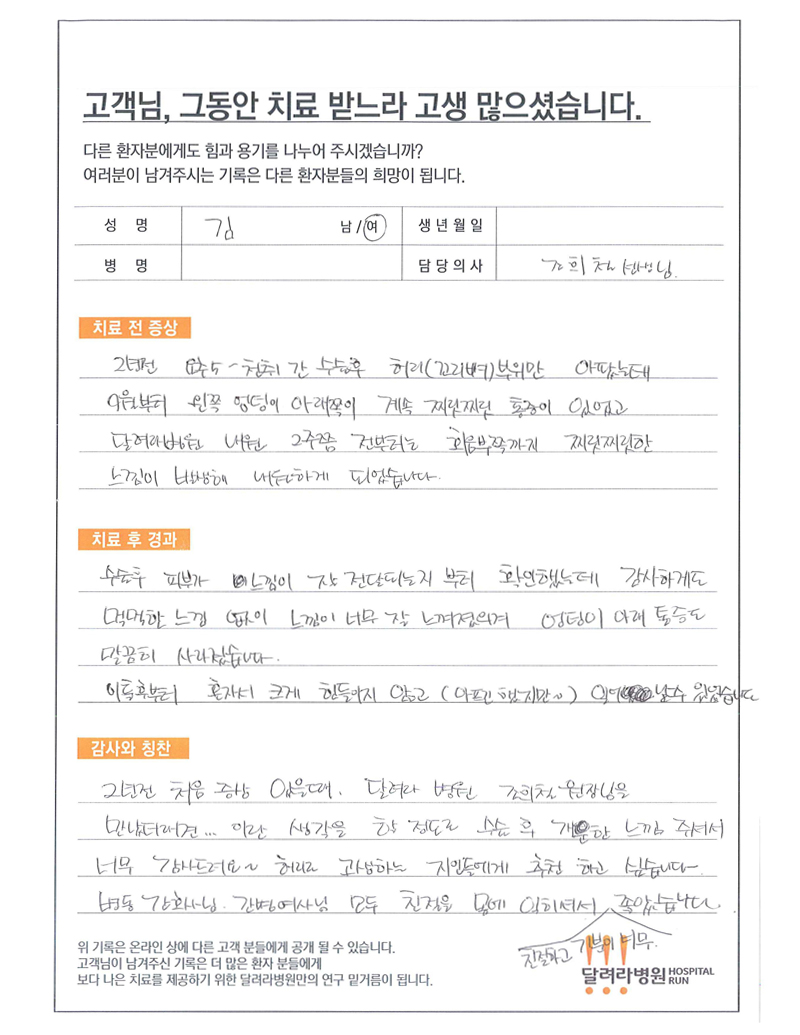 고객님, 그동안 치료 받느라 고생 많으셨습니다.
다른 환자분에게도 힘과 용기를 나누어 주시겠습니까?
여러분이 남겨주시는 기록은 다른 환자분들의 희망이 됩니다.
성 명 김 남/여 생년월일
병 명 담당의사 조희철 선생님.
치료 전 증상
2년전 요추5~천추 간 수술후 허리(꼬리뼈)부위만 아팠는데
9월부터 왼쪽 엉덩이 아래쪽이 계속 찌릿찌릿 통증이 있었고
달려라병원 내원 2주쯤 전부터는 회음부쪽까지 찌릿찌릿한
느낌이 발생해 내원하게 되었습니다.
치료 후 경과
수술후 피부가 느낌이 잘 전달되는지 부터 확인했는데 감사하게도
먹먹한 느낌 없이 느낌이 너무 잘 느껴졌으며 엉덩이 아래 통증도
말끔히 사라졌습니다.
이틀후부터 혼자서 크게 힘들이지 않고 (아프긴 했지만~) 일어날수 있었습니다
감사와 칭찬
2년전 처음 증상 있을때. 달려라 병원 조희철 원장님을
만났더라면... 이란 생각을 할 정도로 수술 후 개운한 느낌 주셔서
너무 감사드려요~ 허리로 고생하는 지인들에게 추천 하고 싶습니다.
병동 간호사님. 간병여사님 모두 친절을 몸에 익히셔서 좋았습니다.
친절하고 기분이 너무.
위 기록은 온라인 상에 다른 고객 분들에게 공개 될 수 있습니다.
고객님이 남겨주신 기록은 더 많은 환자 분들에게
보다 나은 치료를 제공하기 위한 달려라병원만의 연구 밑거름이 됩니다.
달려라병원 HOSPITAL RUN